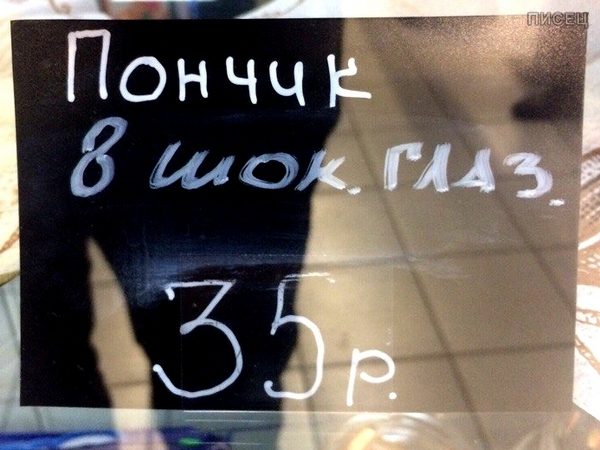 ПИСЕЦ
Пончик
в шок. глаз.
35 р.